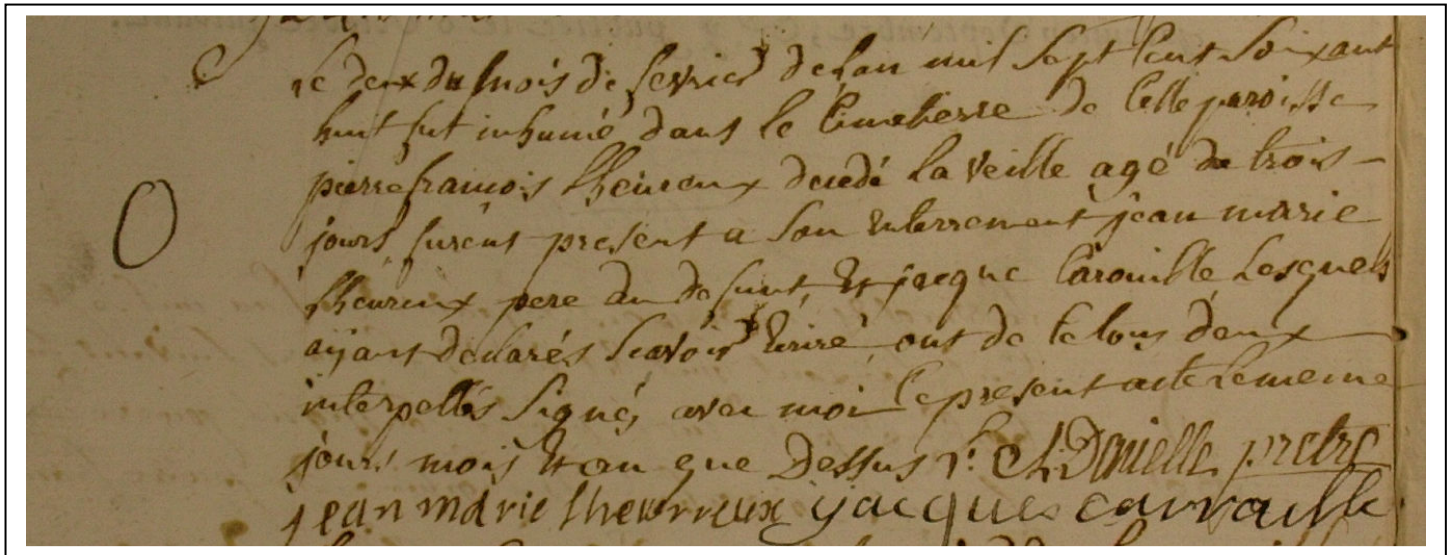 le deux du mois de fevrier de l'an mil sept cent soixant
huit fut inhumé dans le cimetierre de cette paroisse
pierre francois lheureux decedé la veille agé de trois
jours furent present a son enterrement jean marie
lheureux pere du defunt et jacque carouille lesquels
aijant declarés scavoir ecrire ont de ce tous deux
interpellés signés avec moi le present acte le meme
jours mois et an que dessus Danielle pretre
jean marie lheurreux jacques carraille